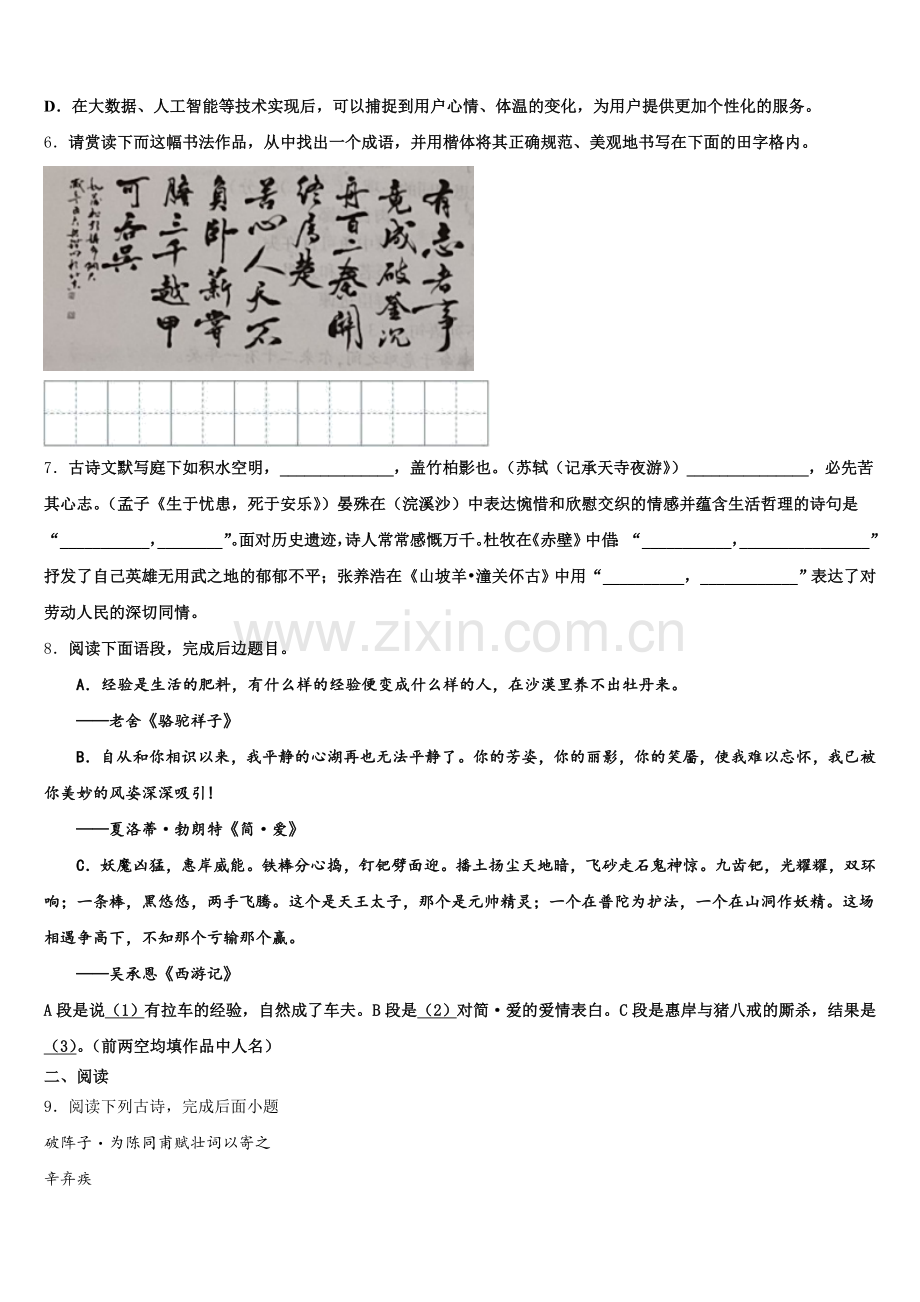 D．在大数据、人工智能等技术实现后，可以捕捉到用户心情、体温的变化，为用户提供更加个性化的服务。
6．请赏读下而这幅书法作品，从中找出一个成语，并用楷体将其正确规范、美观地书写在下面的田字格内。
有志者事
竟成破釜沉
舟百二秦関
终属楚
苦心人天不
负卧薪尝
胆三千越甲
可吞吴
7．古诗文默写庭下如积水空明，______________，盖竹柏影也。（苏轼（记承天寺夜游》）_______________，必先苦
其心志。（孟子《生于忧患，死于安乐》）晏殊在（浣溪沙）中表达惋惜和欣慰交织的情感并蕴含生活哲理的诗句是
“___________，________”。面对历史遗迹，诗人常常感慨万千。杜牧在《赤壁》中借：“___________，________________”
抒发了自己英雄无用武之地的郁郁不平；张养浩在《山坡羊•潼关怀古》中用“__________，____________”表达了对
劳动人民的深切同情。
www.zixin.com.cn
8．阅读下面语段，完成后边题目。
A．经验是生活的肥料，有什么样的经验便变成什么样的人，在沙漠里养不出牡丹来。
——老舍《骆驼祥子》
B．自从和你相识以来，我平静的心湖再也无法平静了。你的芳姿，你的丽影，你的笑靥，使我难以忘怀，我已被
你美妙的风姿深深吸引！
——夏洛蒂·勃朗特《简·爱》
C．妖魔凶猛，惠岸威能。铁棒分心捣，钉钯劈面迎。播土扬尘天地暗，飞砂走石鬼神惊。九齿钯，光耀耀，双环
响；一条棒，黑悠悠，两手飞腾。这个是天王太子，那个是元帅精灵；一个在普陀为护法，一个在山洞作妖精。这场
相遇争高下，不知那个亏输那个赢。
——吴承恩《西游记》
A段是说（1）有拉车的经验，自然成了车夫。B段是（2）对简·爱的爱情表白。C段是惠岸与猪八戒的厮杀，结果是
（3）。（前两空均填作品中人名）
二、阅读
9．阅读下列古诗，完成后面小题
破阵子·为陈同甫赋壮词以寄之
辛弃疾